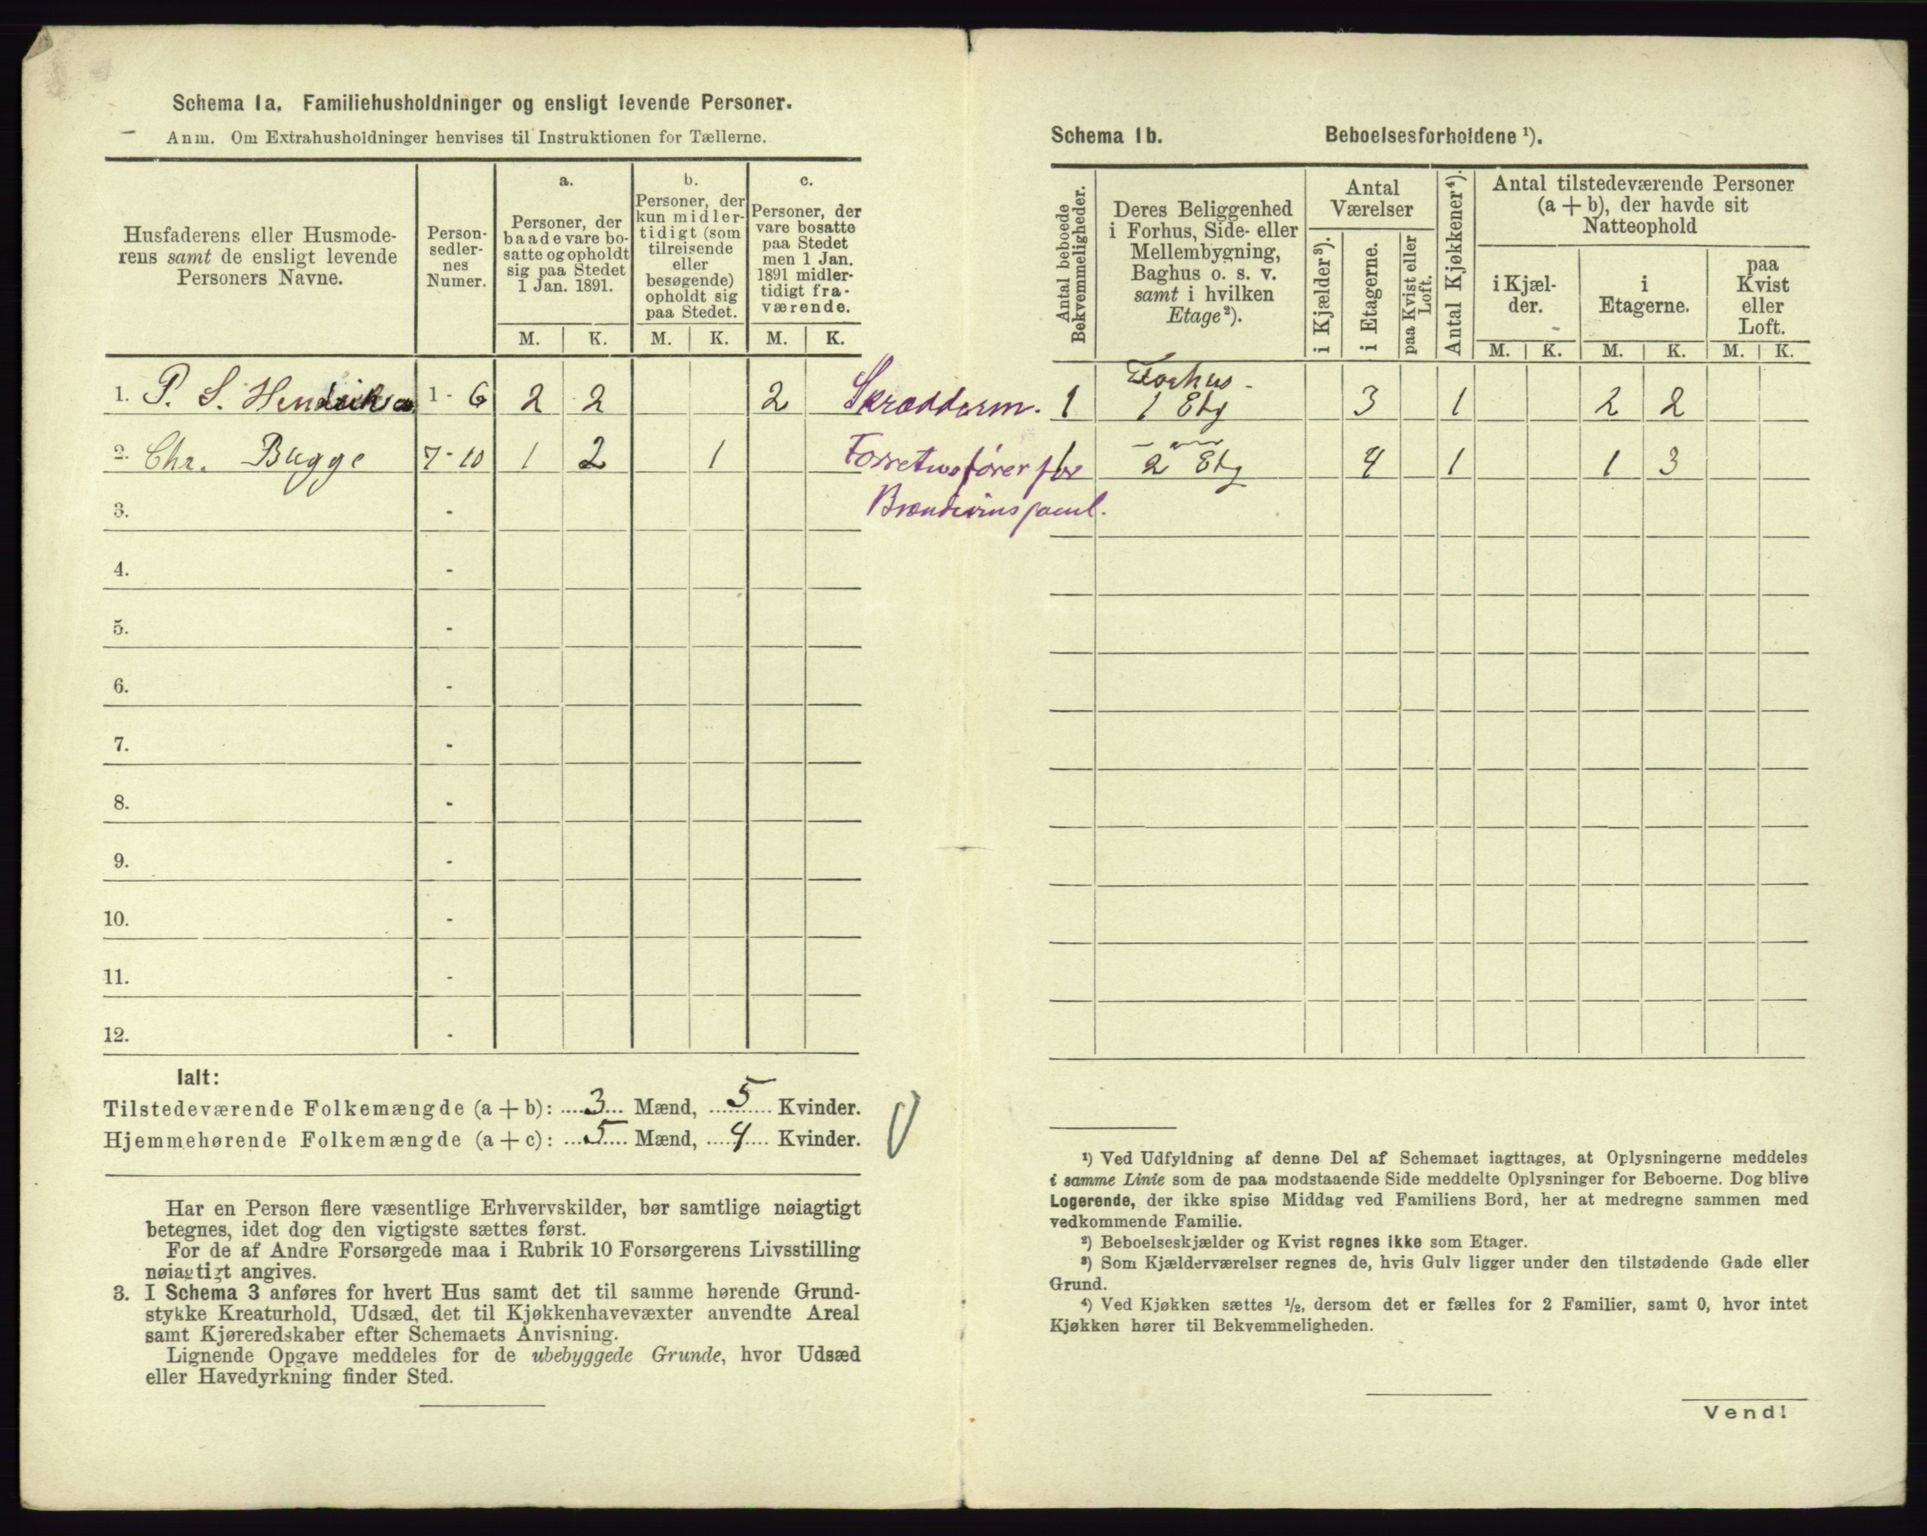 Schema 1a. Familiehusholdninger og ensligt levende Personer.
Anm. Om Extrahusholdninger henvises til Instruktionen for Tællerne.
Husfaderens eller Husmode-
rens samt de ensligt levende
Personers Navne.
Person-
sedler-
nes
Numer.
a.
Personer, der
baade vare bo-
satte og opholdt
sig paa Stedet
1 Jan. 1891.
b.
Personer, der
kun midler-
tidigt (som
tilreisende
eller
besøgende)
opholdt sig
paa Stedet.
c.
Personer, der
vare bosatte
paa Stedet
men 1 Jan.
1891 midler-
tidigt fra-
værende.
M. K. M. K. M. K.
1. P. S. Hendriksen 1 - 6 2 2 2 Skrædderm.
2. Chr. Bugge 7 - 10 1 2 1 Forretnsfører for
Brændevinssaml.
3. -
4. -
5. -
6. -
7. -
8. -
9. -
10. -
11. -
12. -
Ialt:
Tilstedeværende Folkemængde (a + b): 3 Mænd, 5 Kvinder.
Hjemmehørende Folkemængde (a + c): 5 Mænd, 4 Kvinder.
Har en Person flere væsentlige Erhvervskilder, bør samtlige nøiagtigt
betegnes, idet dog den vigtigste sættes først.
For de af Andre Forsørgede maa i Rubrik 10 Forsørgerens Livsstilling
nøiagtigt angives.
3. I Schema 3 anføres for hvert Hus samt det til samme hørende Grund-
stykke Kreaturhold, Udsæd, det til Kjøkkenhavevæxter anvendte Areal
samt Kjøreredskaber efter Schemaets Anvisning.
Lignende Opgave meddeles for de ubebyggede Grunde, hvor Udsæd
eller Havedyrkning finder Sted.
Schema 1b. Beboelsesforholdene ¹).
Antal beboede
Bekvemmeligheder.
Deres Beliggenhed
i Forhus, Side- eller
Mellembygning,
Baghus o. s. v.
samt i hvilken
Etage²).
Antal
Værelser
i Kjælder³).
i Etagerne.
paa Kvist eller
Loft.
Antal Kjøkkener⁴).
Antal tilstedeværende Personer
(a + b), der havde sit
Natteophold
i Kjæl-
der.
i
Etagerne.
paa
Kvist
eller
Loft.
M. K. M. K. M. K.
Forhus -
1 1 Etg 3 1 2 2
1 2 Etg 4 1 1 3
¹) Ved Udfyldning af denne Del af Schemaet iagttages, at Oplysningerne meddeles
i samme Linie som de paa modstaaende Side meddelte Oplysninger for Beboerne. Dog blive
Logerende, der ikke spise Middag ved Familiens Bord, her at medregne sammen med
vedkommende Familie.
²) Beboelseskjælder og Kvist regnes ikke som Etager.
³) Som Kjælderværelser regnes de, hvis Gulv ligger under den tilstødende Gade eller
Grund.
⁴) Ved Kjøkken sættes ½, dersom det er fælles for 2 Familier, samt 0, hvor intet
Kjøkken hører til Bekvemmeligheden.
Vend!